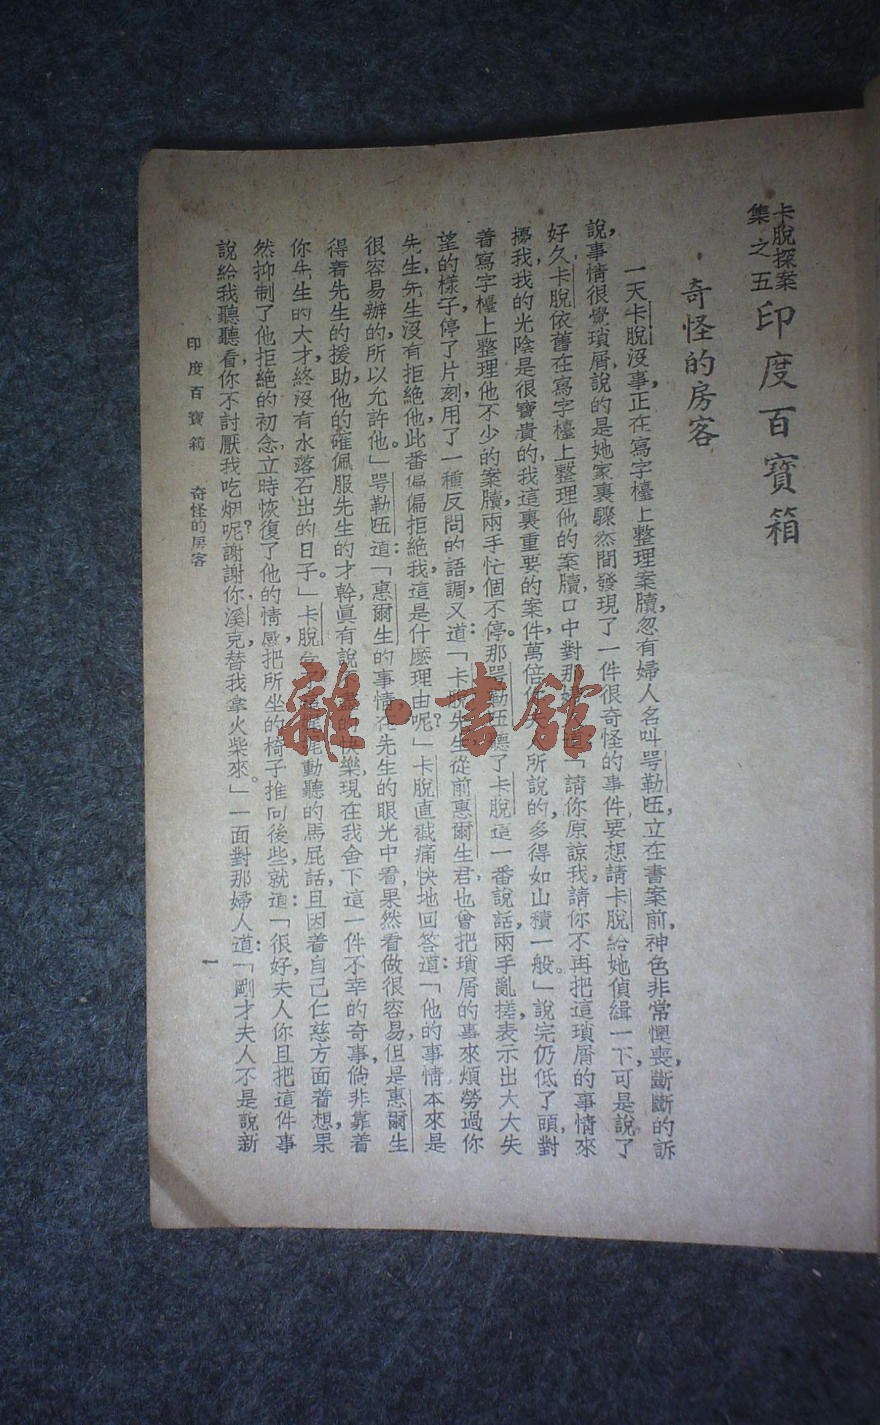 卡脫探案
集之五
印度百寶箱
奇怪的房客
一天卡脫沒事,正在寫字檯上整理案牘,忽有婦人名叫咢勒匜,立在書案前,神色非常懊喪,斷斷的訴
說,事情很覺瑣屑,說的是她家裏驟然間發現了一件很奇怪的事件,要想請卡脫給她偵緝一下,可是說了
好久,卡脫依舊在寫字檯上整理他的案牘,口中對那道「請你原諒我,請你不再把這瑣屑的事情來
擾我,我的光陰是很寶貴的,我這裏重要的案件,萬倍人所說的,多得如山積一般。」說完仍低了頭,對
着寫字檯上整理他不少的案牘,兩手忙個不停。那咢勒匜聽了卡脫這一番說話,兩手亂搓,表示出大大失
望的樣子,停了片刻,用了一種反問的語調,又道:「卡脫先生,從前惠爾生君也曾把瑣屑的事來煩勞過你
先生,先生沒有拒絕他,此番偏偏拒絕我,這是什麼理由呢?」卡脫直截痛快地回答道:「他的事情本來是
很容易辦的,所以允許他。」咢勒匜道:「惠爾生的事情,在先生的眼光中看,果然看做很容易,但是惠爾生
得着先生的援助,他的確佩服先生的才幹,眞有說快樂,現在我舍下這一件不幸的奇事,倘非靠着
你先生的大才,終沒有水落石出的日子。」卡脫動聽的馬屁話,且因着自己仁慈方面着想,果
然抑制了他拒絕的初念,立時恢復了他的情感,把所坐的椅子推向後些,就道:「很好,夫人,你且把這件事
說給我聽聽看,你不討厭我吃烟呢?謝謝你,溪克替我拿火柴來。」一面對那婦人道:「剛才夫人不是說新
印度百寶箱 奇怪的房客
一
雜·書館